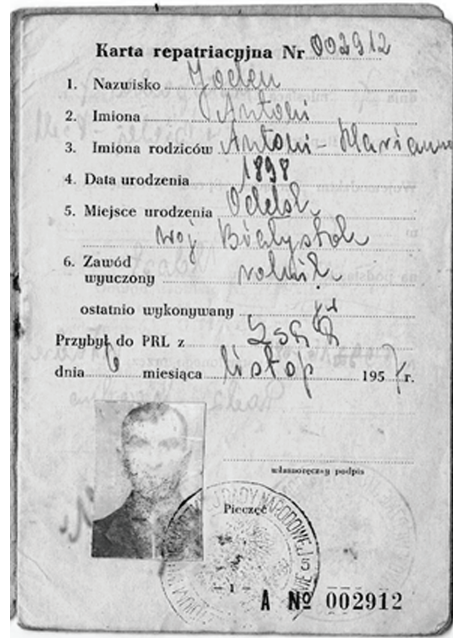 Karta repatriacyjna Nr 002912
1. Nazwisko Joden
2. Imiona Antoni
3. Imiona rodziców Antoni - Marianna
4. Data urodzenia 1898
5. Miejsce urodzenia Odelsk
woj Białystok
6. Zawód
wyuczony rolnik
ostatnio wykonywany jw
Przybył do PRL z ZSRR
dnia 6 miesiąca listop 1957 r.
własnoręczny podpis
Pieczęć
RADY NARODOWEJ
- 1 -
A № 002912